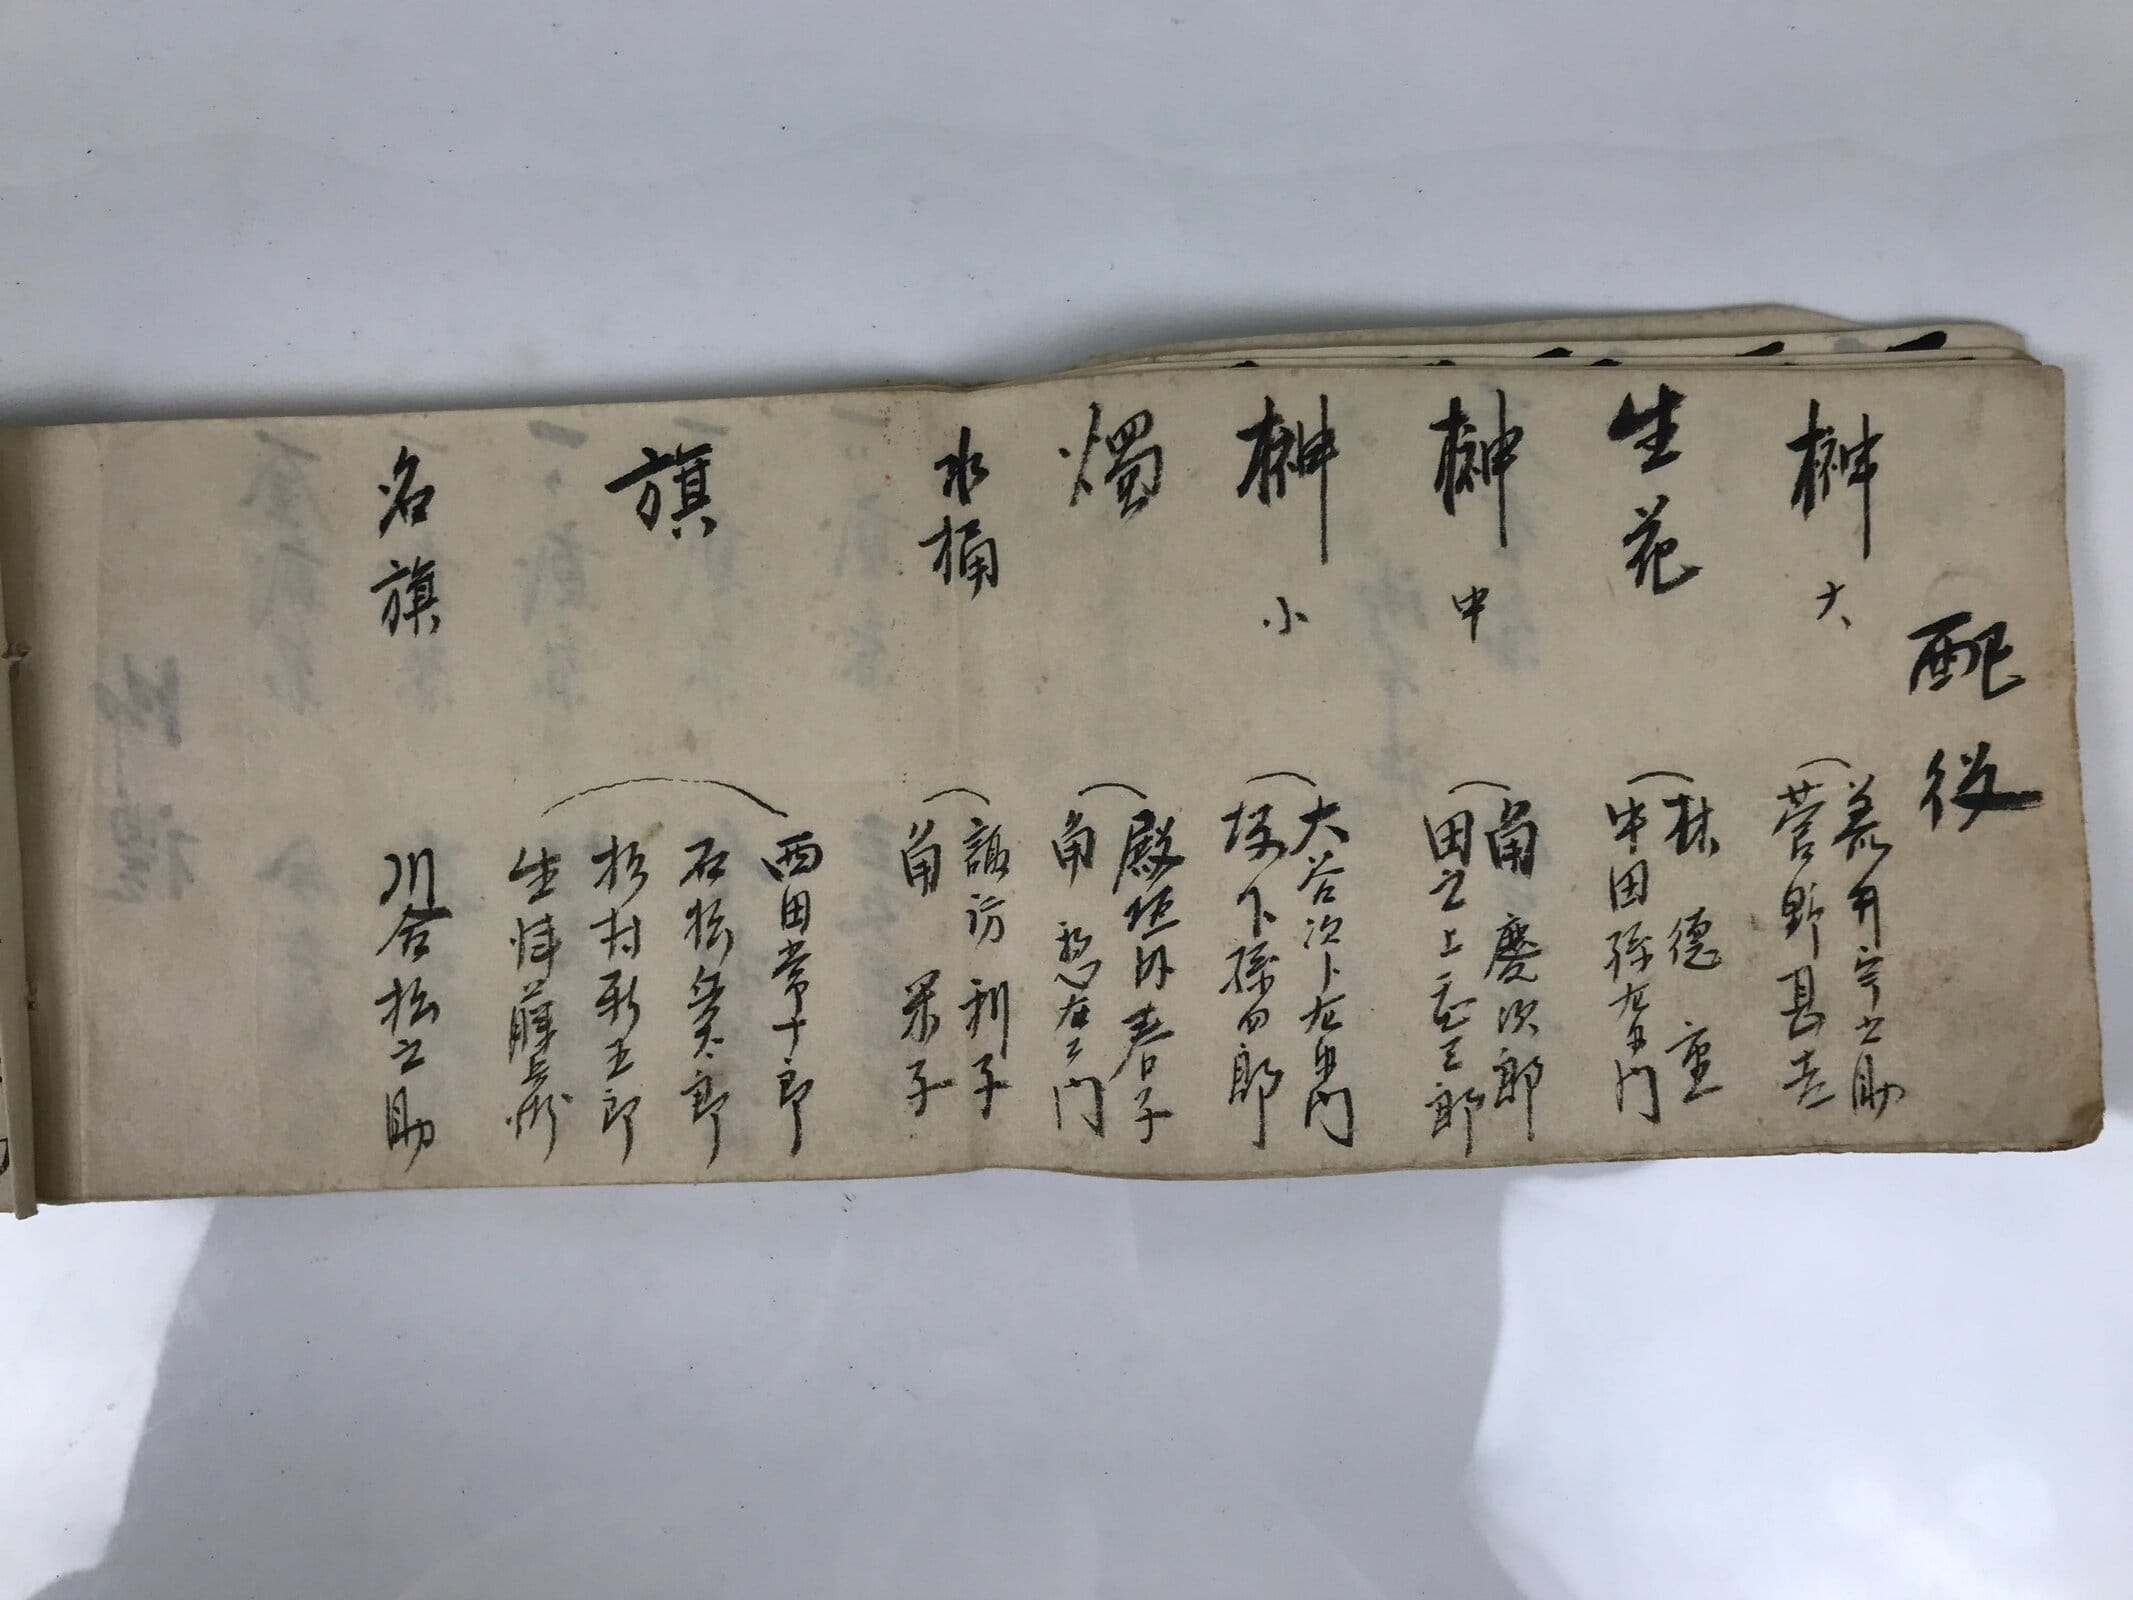 配役
榊 大
井宇之助
菅野甚吉
生花
林 徳重
中田孫左エ門
榊 中
角 慶次郎
田之上三郎
榊 小
大谷次卜左エ門
坂下孫四郎
燭
殿垣外春子
角 左エ門
水桶
諏訪利子
角 米子
旗
西田常十郎
石松矣太郎
杉村新五郎
生 藤兵衛
名旗
川合松之助